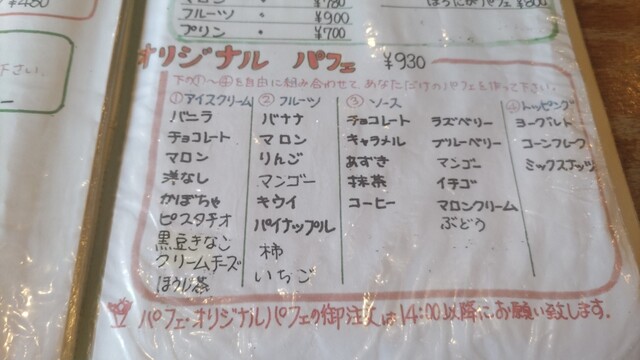 ¥480
マロン 〃 ¥780
フルーツ 〃 ¥900
プリン 〃 ¥700
ほうじ茶パフェ ¥800
オリジナル パフェ ¥930
下の①〜④を自由に組み合わせて、あなただけのパフェを作って下さい。
下さい。
①アイスクリーム
バニラ
チョコレート
マロン
洋なし
かぼちゃ
ピスタチオ
黒豆きなこ
クリームチーズ
ほうじ茶
②フルーツ
バナナ
マロン
りんご
マンゴー
キウイ
パイナップル
柿
いちご
③ソース
チョコレート ラズベリー
キャラメル ブルーベリー
あずき マンゴー
抹茶 イチゴ
コーヒー マロンクリーム
ぶどう
④トッピング
ヨーグルト
コーンフレーク
ミックスナッツ
パフェ・オリジナルパフェの御注文は14:00以降に、お願い致します。